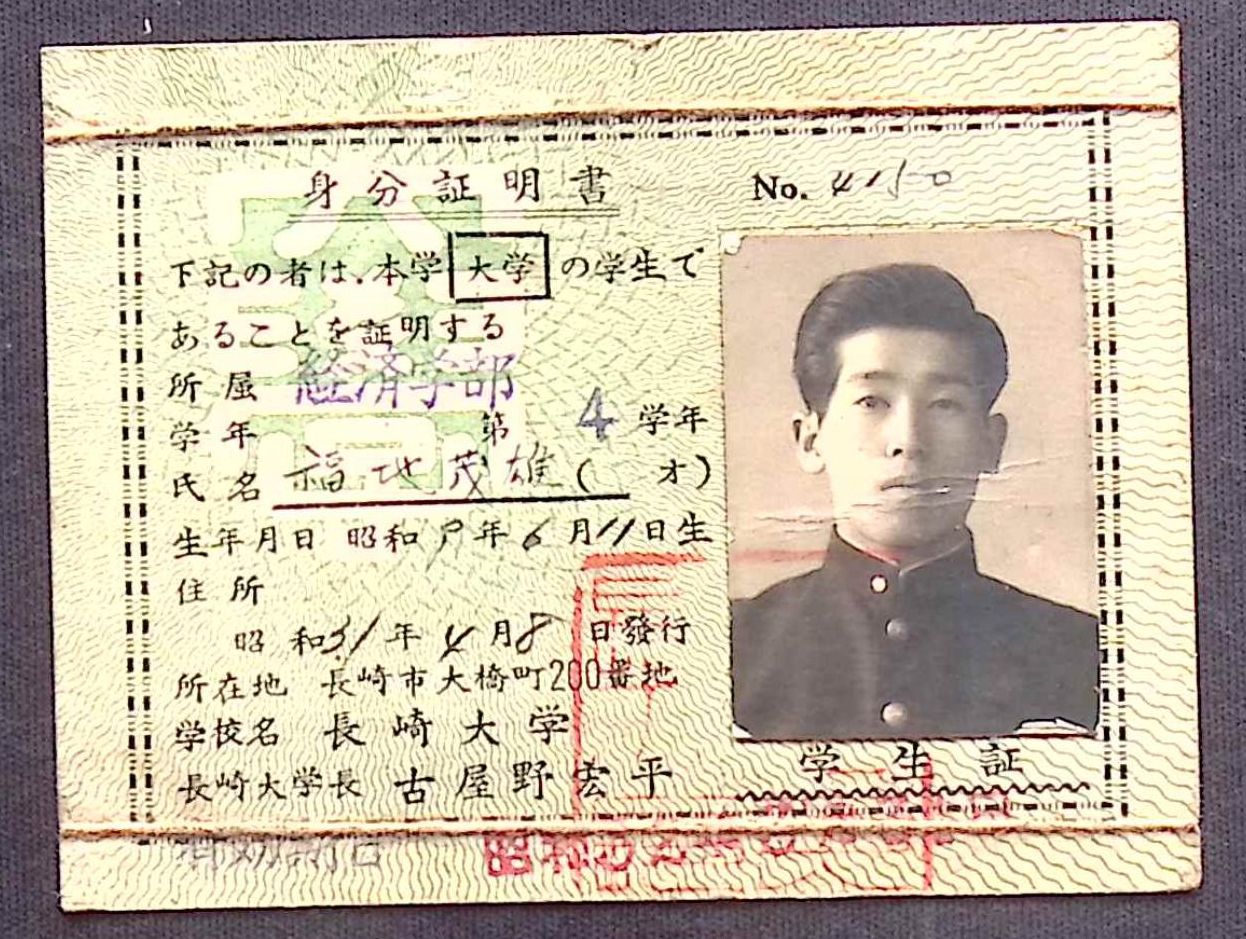 身分証明書
No. 4150
下記の者は、本学 大学 の学生で
あることを証明する
所属 経済学部
学年 第 4 学年
氏名 福地茂雄 ( 才)
生年月日 昭和 年 6 月 11 日生
住所
昭和 31 年 4 月 8 日發行
所在地 長崎市大橋町200番地
学校名 長崎大学
長崎大学長 古屋野宏平
学生証